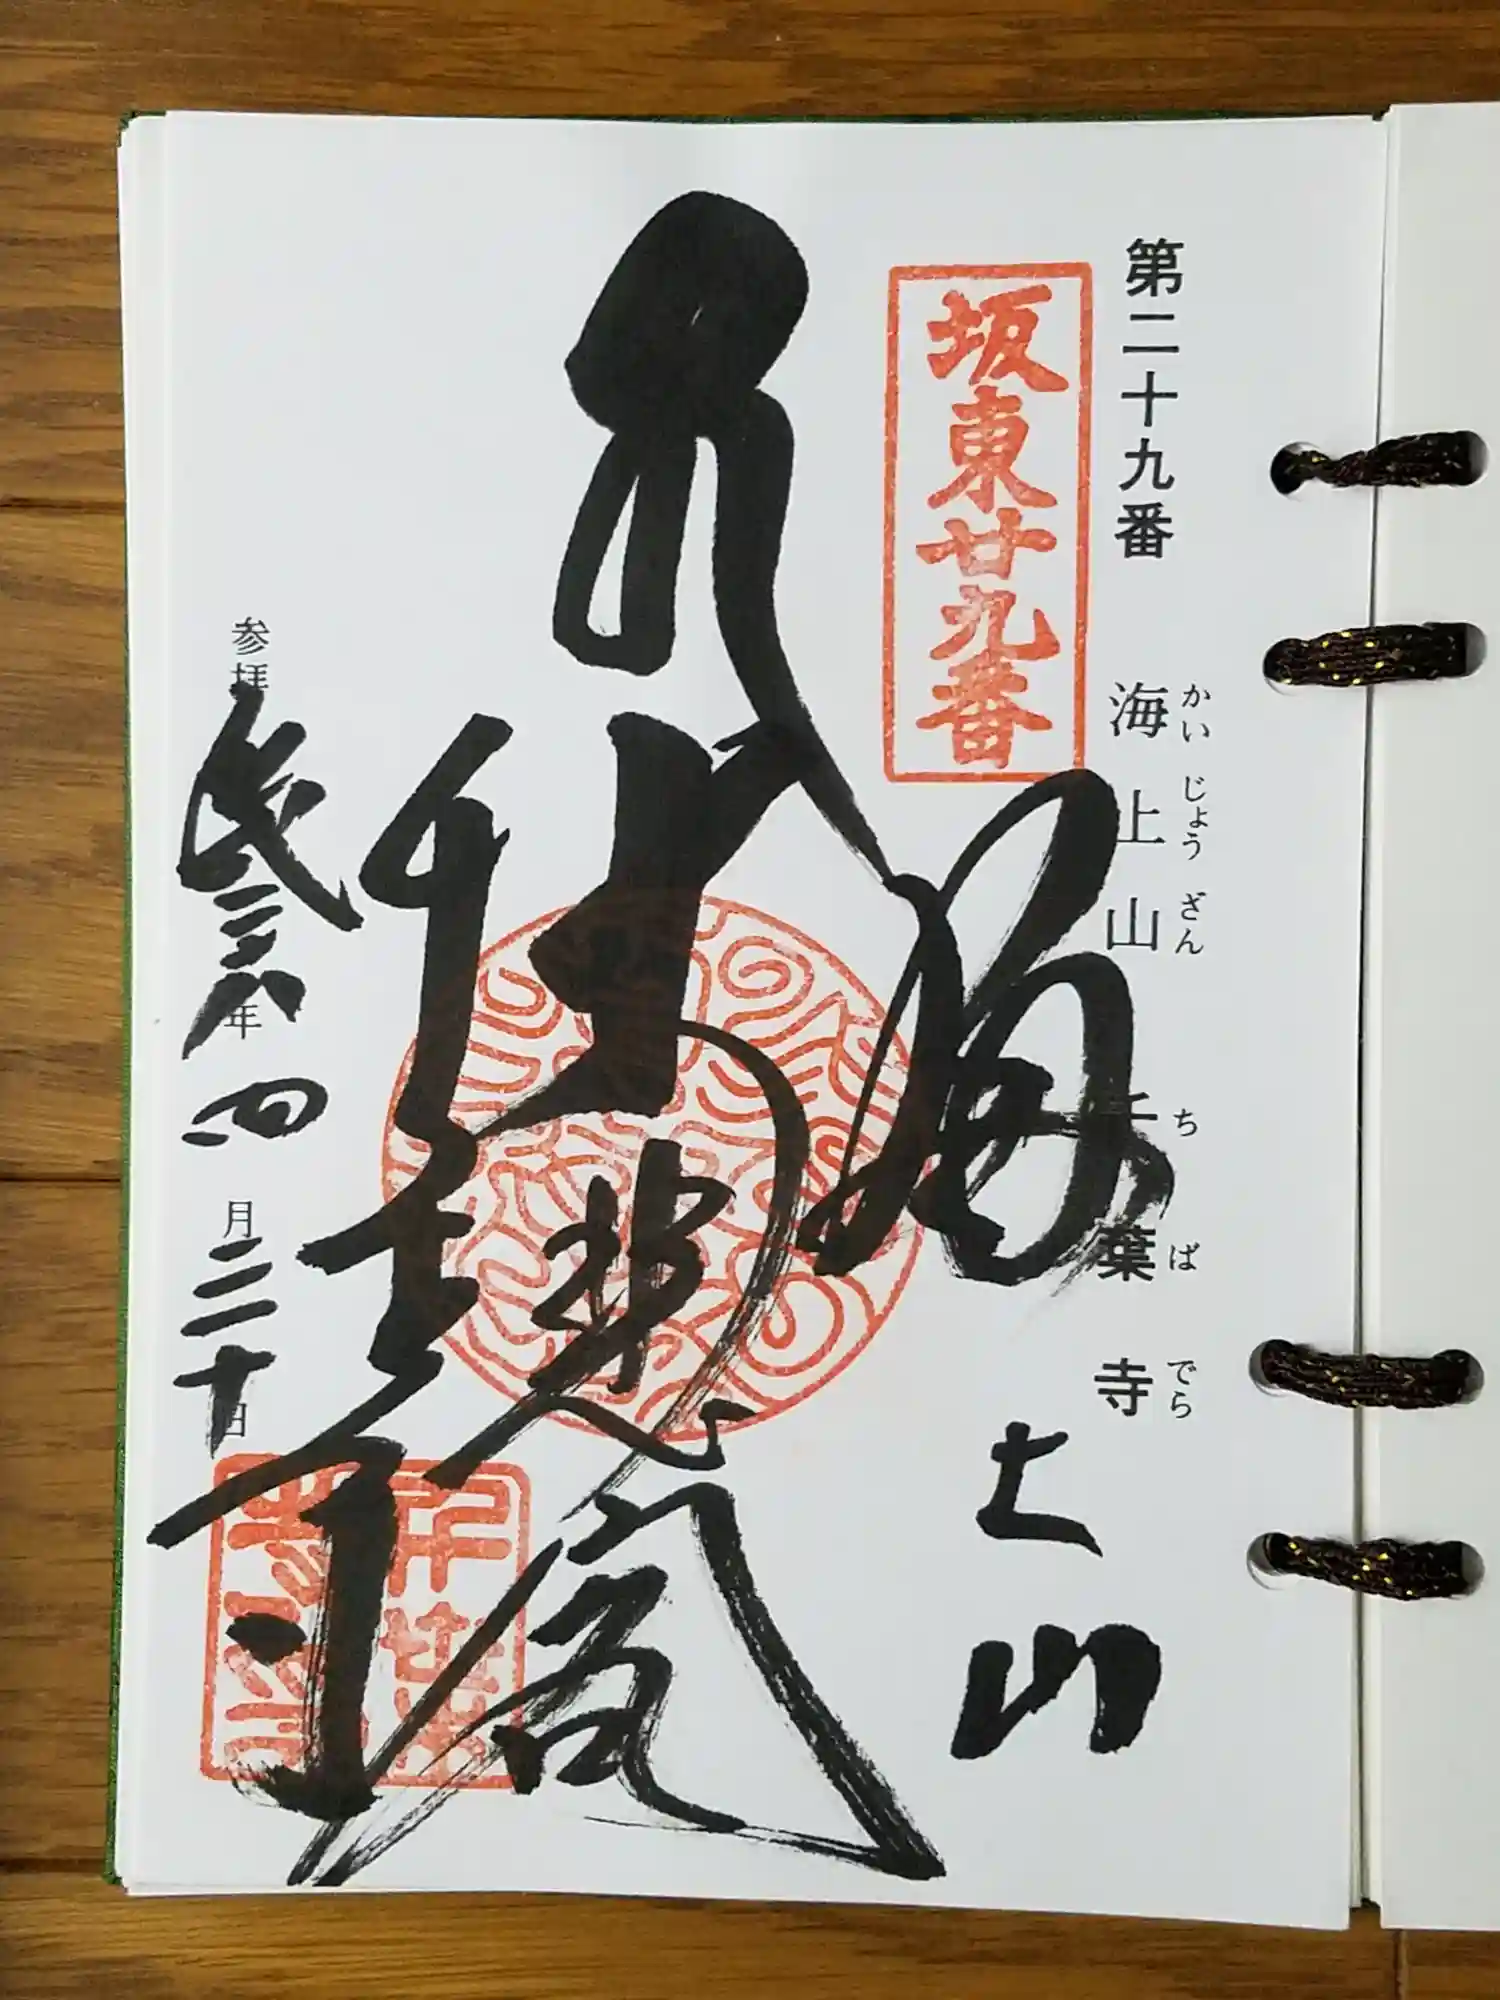 第二十九番 海上山 千葉寺
かいじょうざん ちばでら
坂東廿九番
海上山
大悲閣
千葉寺
参拝
年四月二十日
千葉寺